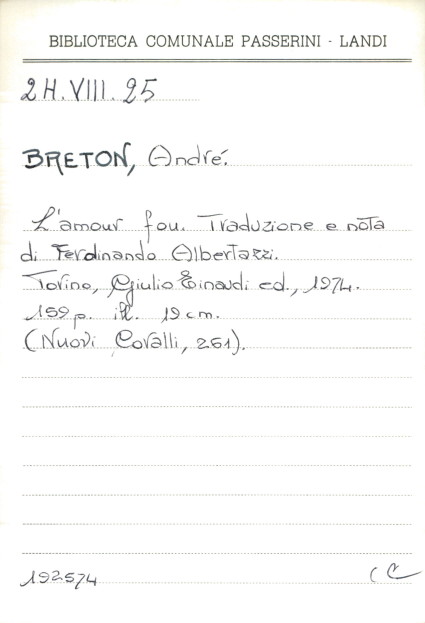 BIBLIOTECA COMUNALE PASSERINI - LANDI
2H.VIII.25
BRETON, André.
L'amour fou. Traduzione e nota
di Ferdinando Albertazzi.
Torino, Giulio Einaudi ed., 1974.
159 p. ill. 19 cm.
(Nuovi Coralli, 261).
192574